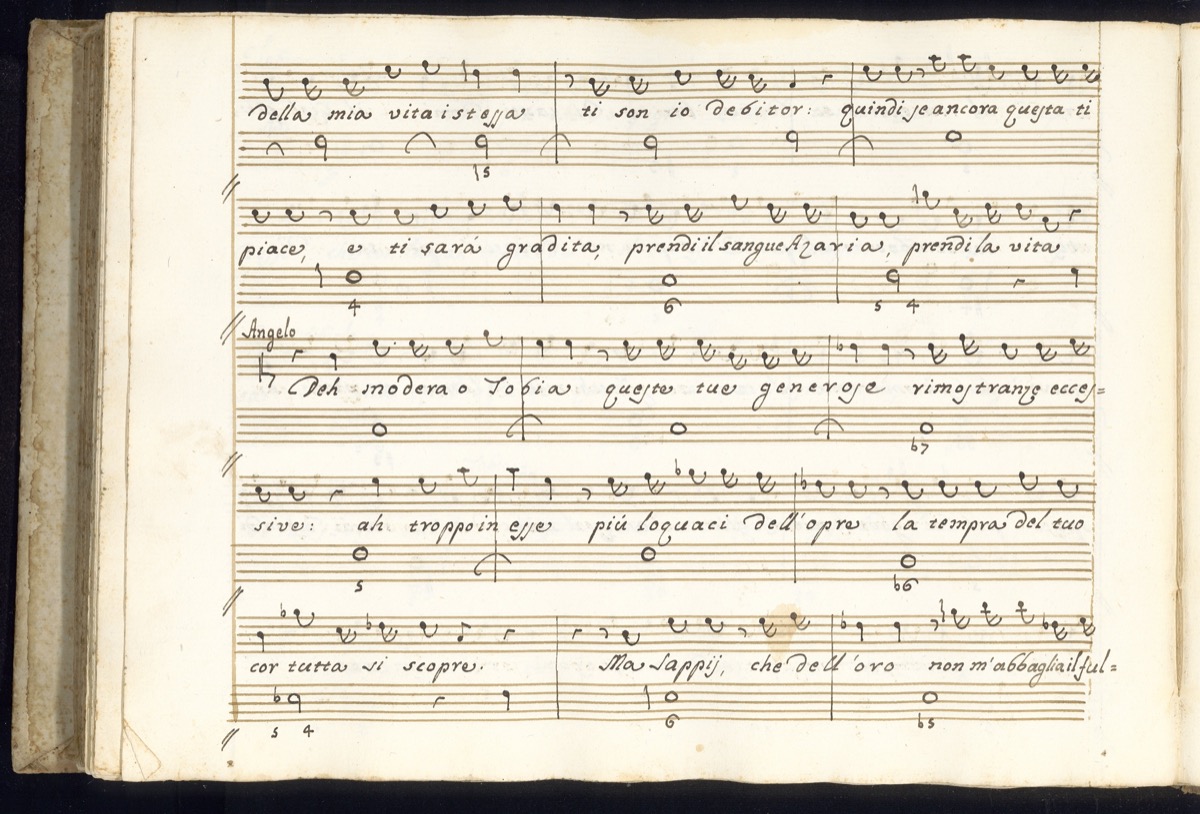 della mia vita istessa ti son io debitor: quindi se ancora questa ti
♮5
piace, e ti sará gradita, prendi il sangue Azaria, prendi la vita
4 6 5 4
Angelo
Deh modera o Tobia queste tue generose rimostranze ecces=
♭7
sive: ah troppo in esse piú loquaci dell'opre la tempra del tuo
5 ♭6
cor tutta si scopre. Ma sappij, che dell'oro non m'abbaglia il ful=
5 4 6 ♭5